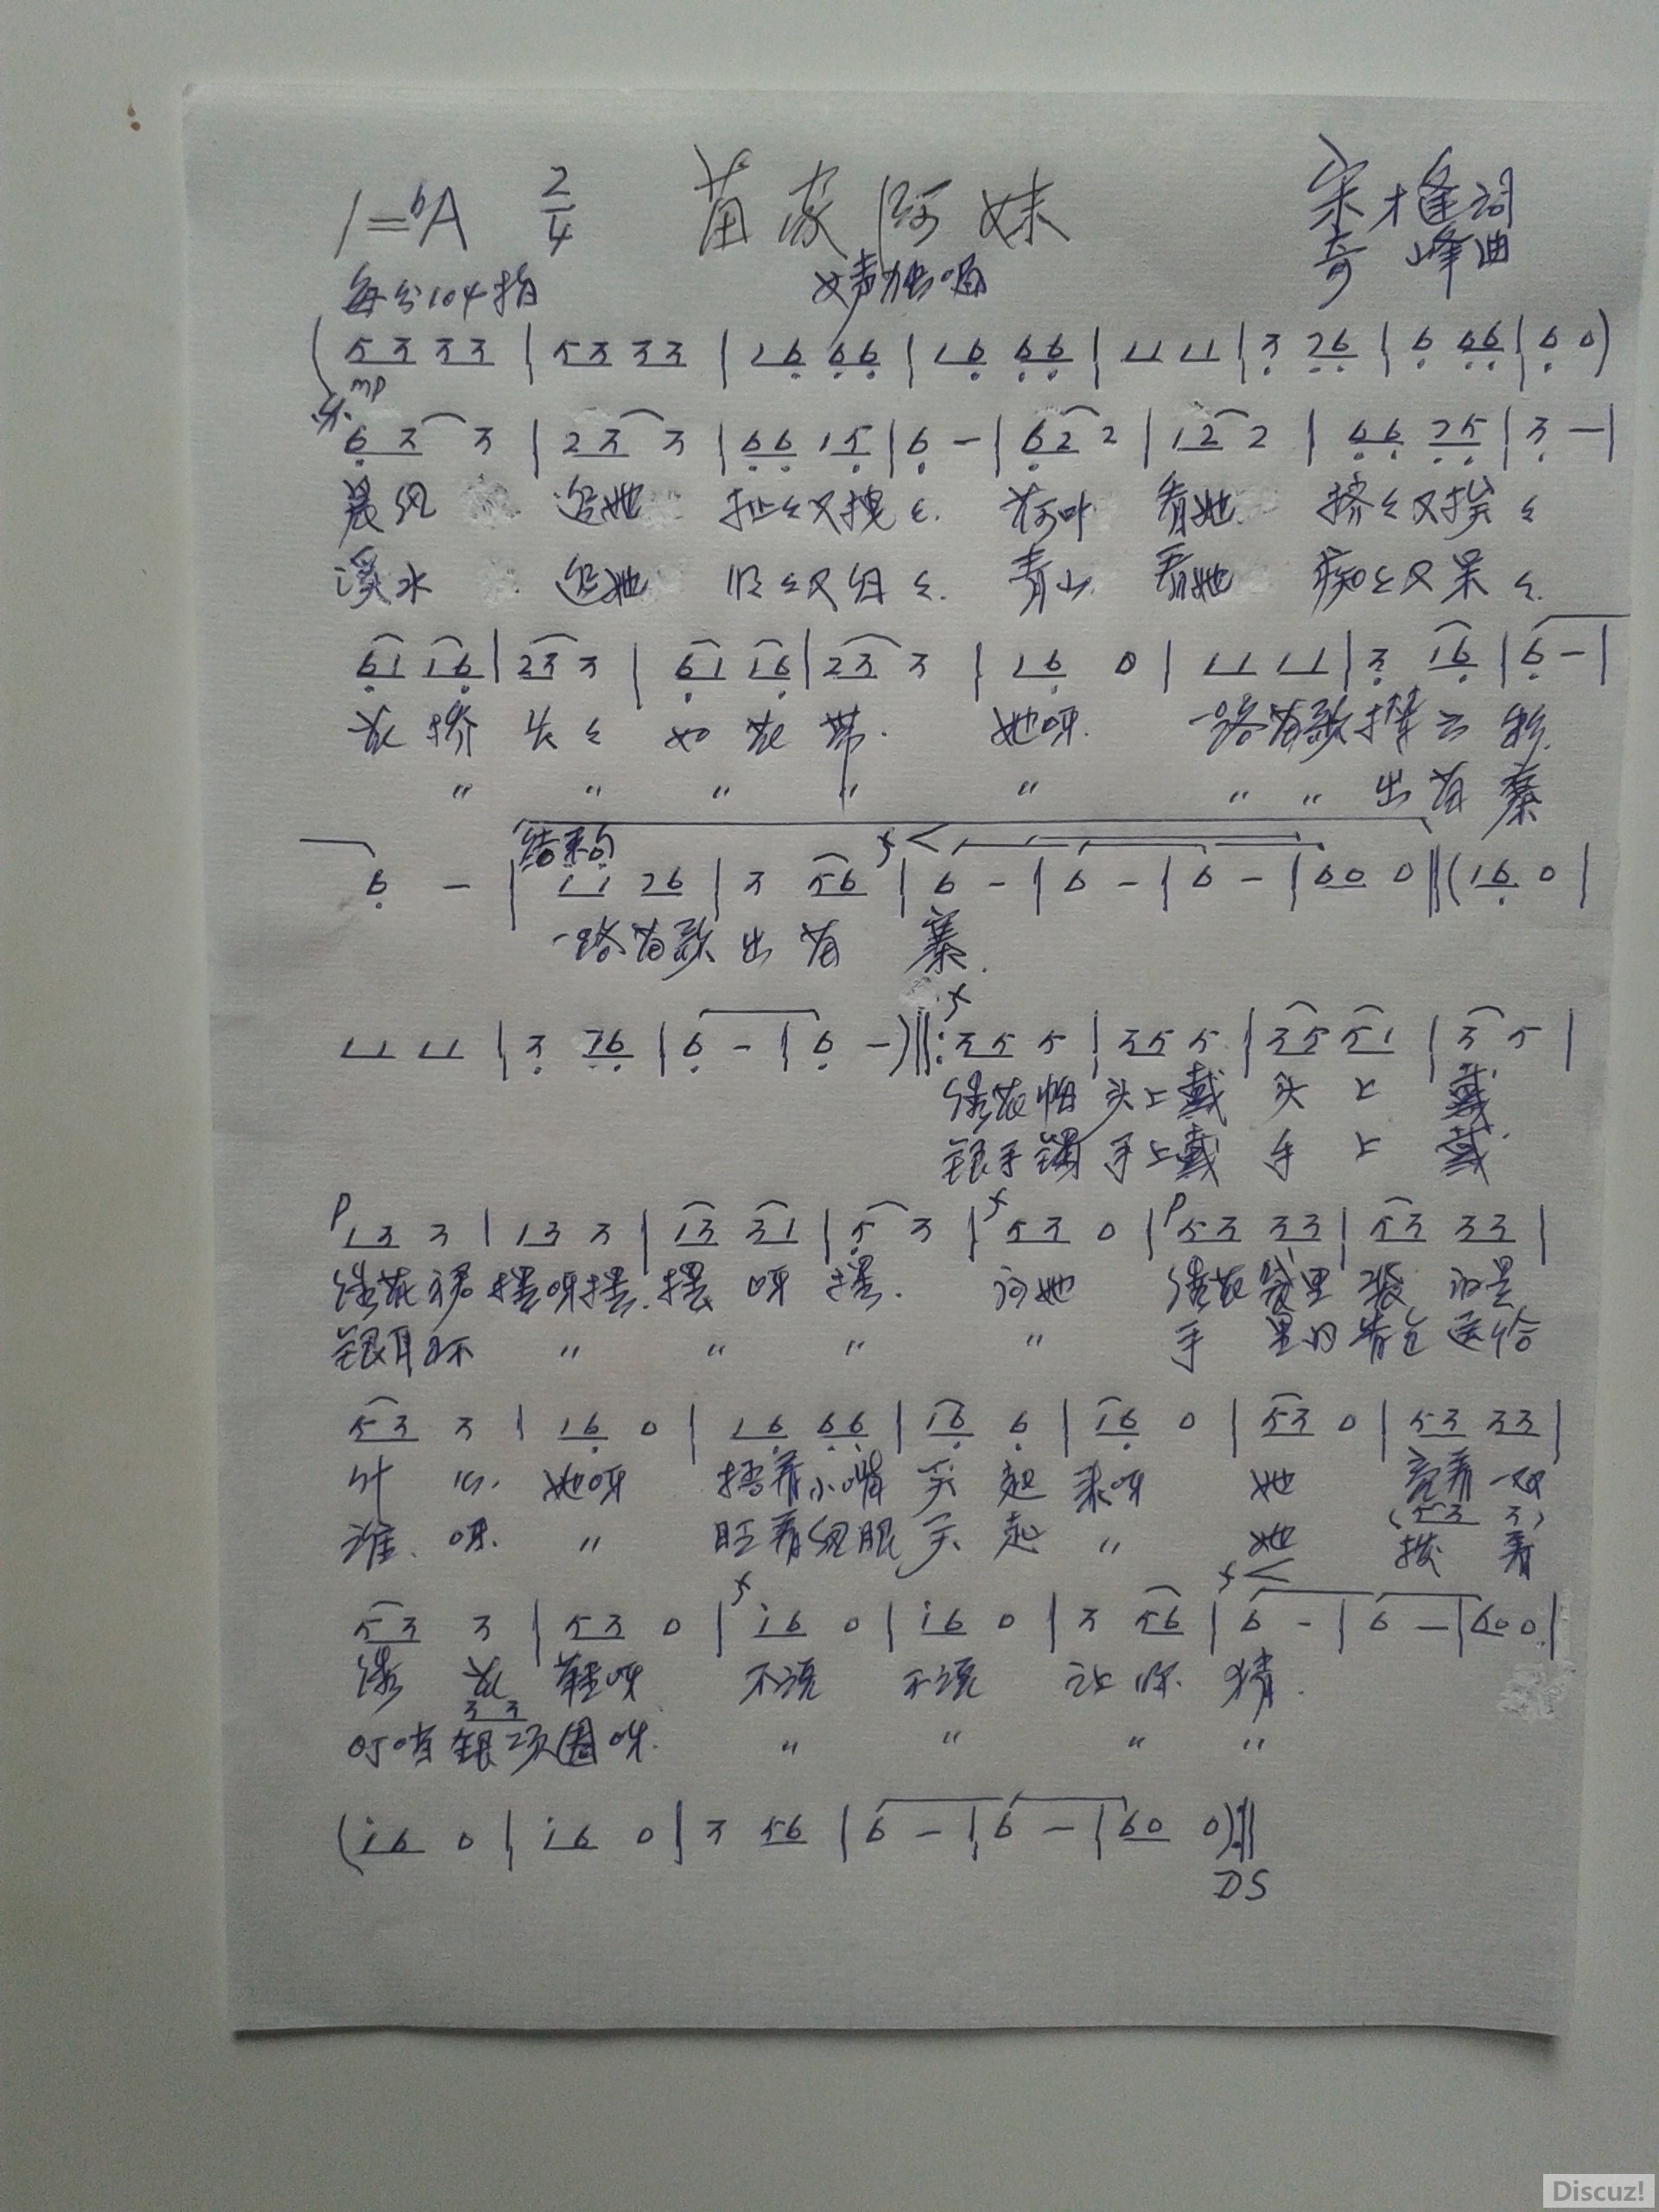 1=bA 2/4 苗家阿妹 宋才逢词
每分104拍 女声独唱 奇峰曲
(53 33 | 53 33 | 16 66 | 16 66 | 11 11 | 3 26 | 6 66 | 6 0)
mp
63 3 | 23 3 | 66 15 | 6 - | 62 2 | 12 2 | 66 25 | 3 - |
晨风 追她 扯々又拽々. 荷叶 看她 挤々又挨々
溪水 追她 又 々. 青山 看她 痴々又呆々.
61 16 | 23 3 | 61 16 | 23 3 | 16 0 | 11 11 | 3 16 | 6 - |
花 头々 如花带. 她呀. 一路苗歌 云彩.
" " " " " " " 出苗寨
6 - | 结束句 11 26 | 3 56 | f< 6 - | 6 - | 6 - | 60 0 ‖ (16 0 |
一路苗歌出苗寨.
11 11 | 3 26 | 6 - | 6 -) ‖: f 35 5 | 35 5 | 35 51 | 3 5 |
绣花帕头上戴 头上戴
银手镯手上戴 手上戴
P 13 3 | 13 3 | 13 31 | 5 3 | f 53 0 | P 53 33 | 53 33 |
绣花裙摆呀摆.摆呀摆. 问她 绣花袋里装的是
银耳环 " " " " 手里的 送给
53 3 | 16 0 | 16 66 | 16 6 | 16 0 | 53 0 | 53 33 |
什么. 她呀 捂着小嘴笑起来呀 她 一双
(53 3)
谁呀. " 眼笑起 " 她 着
f f<
53 3 | 53 0 | i6 0 | i6 0 | 3 56 | 6 - | 6 - | 60 0 |
绣花鞋呀 不说 不说 让你猜.
33
叮当银项圈呀. " " " "
(i6 0 | i6 0 | 3 56 | 6 - | 6 - | 60 0) :‖
DS
Discuz!